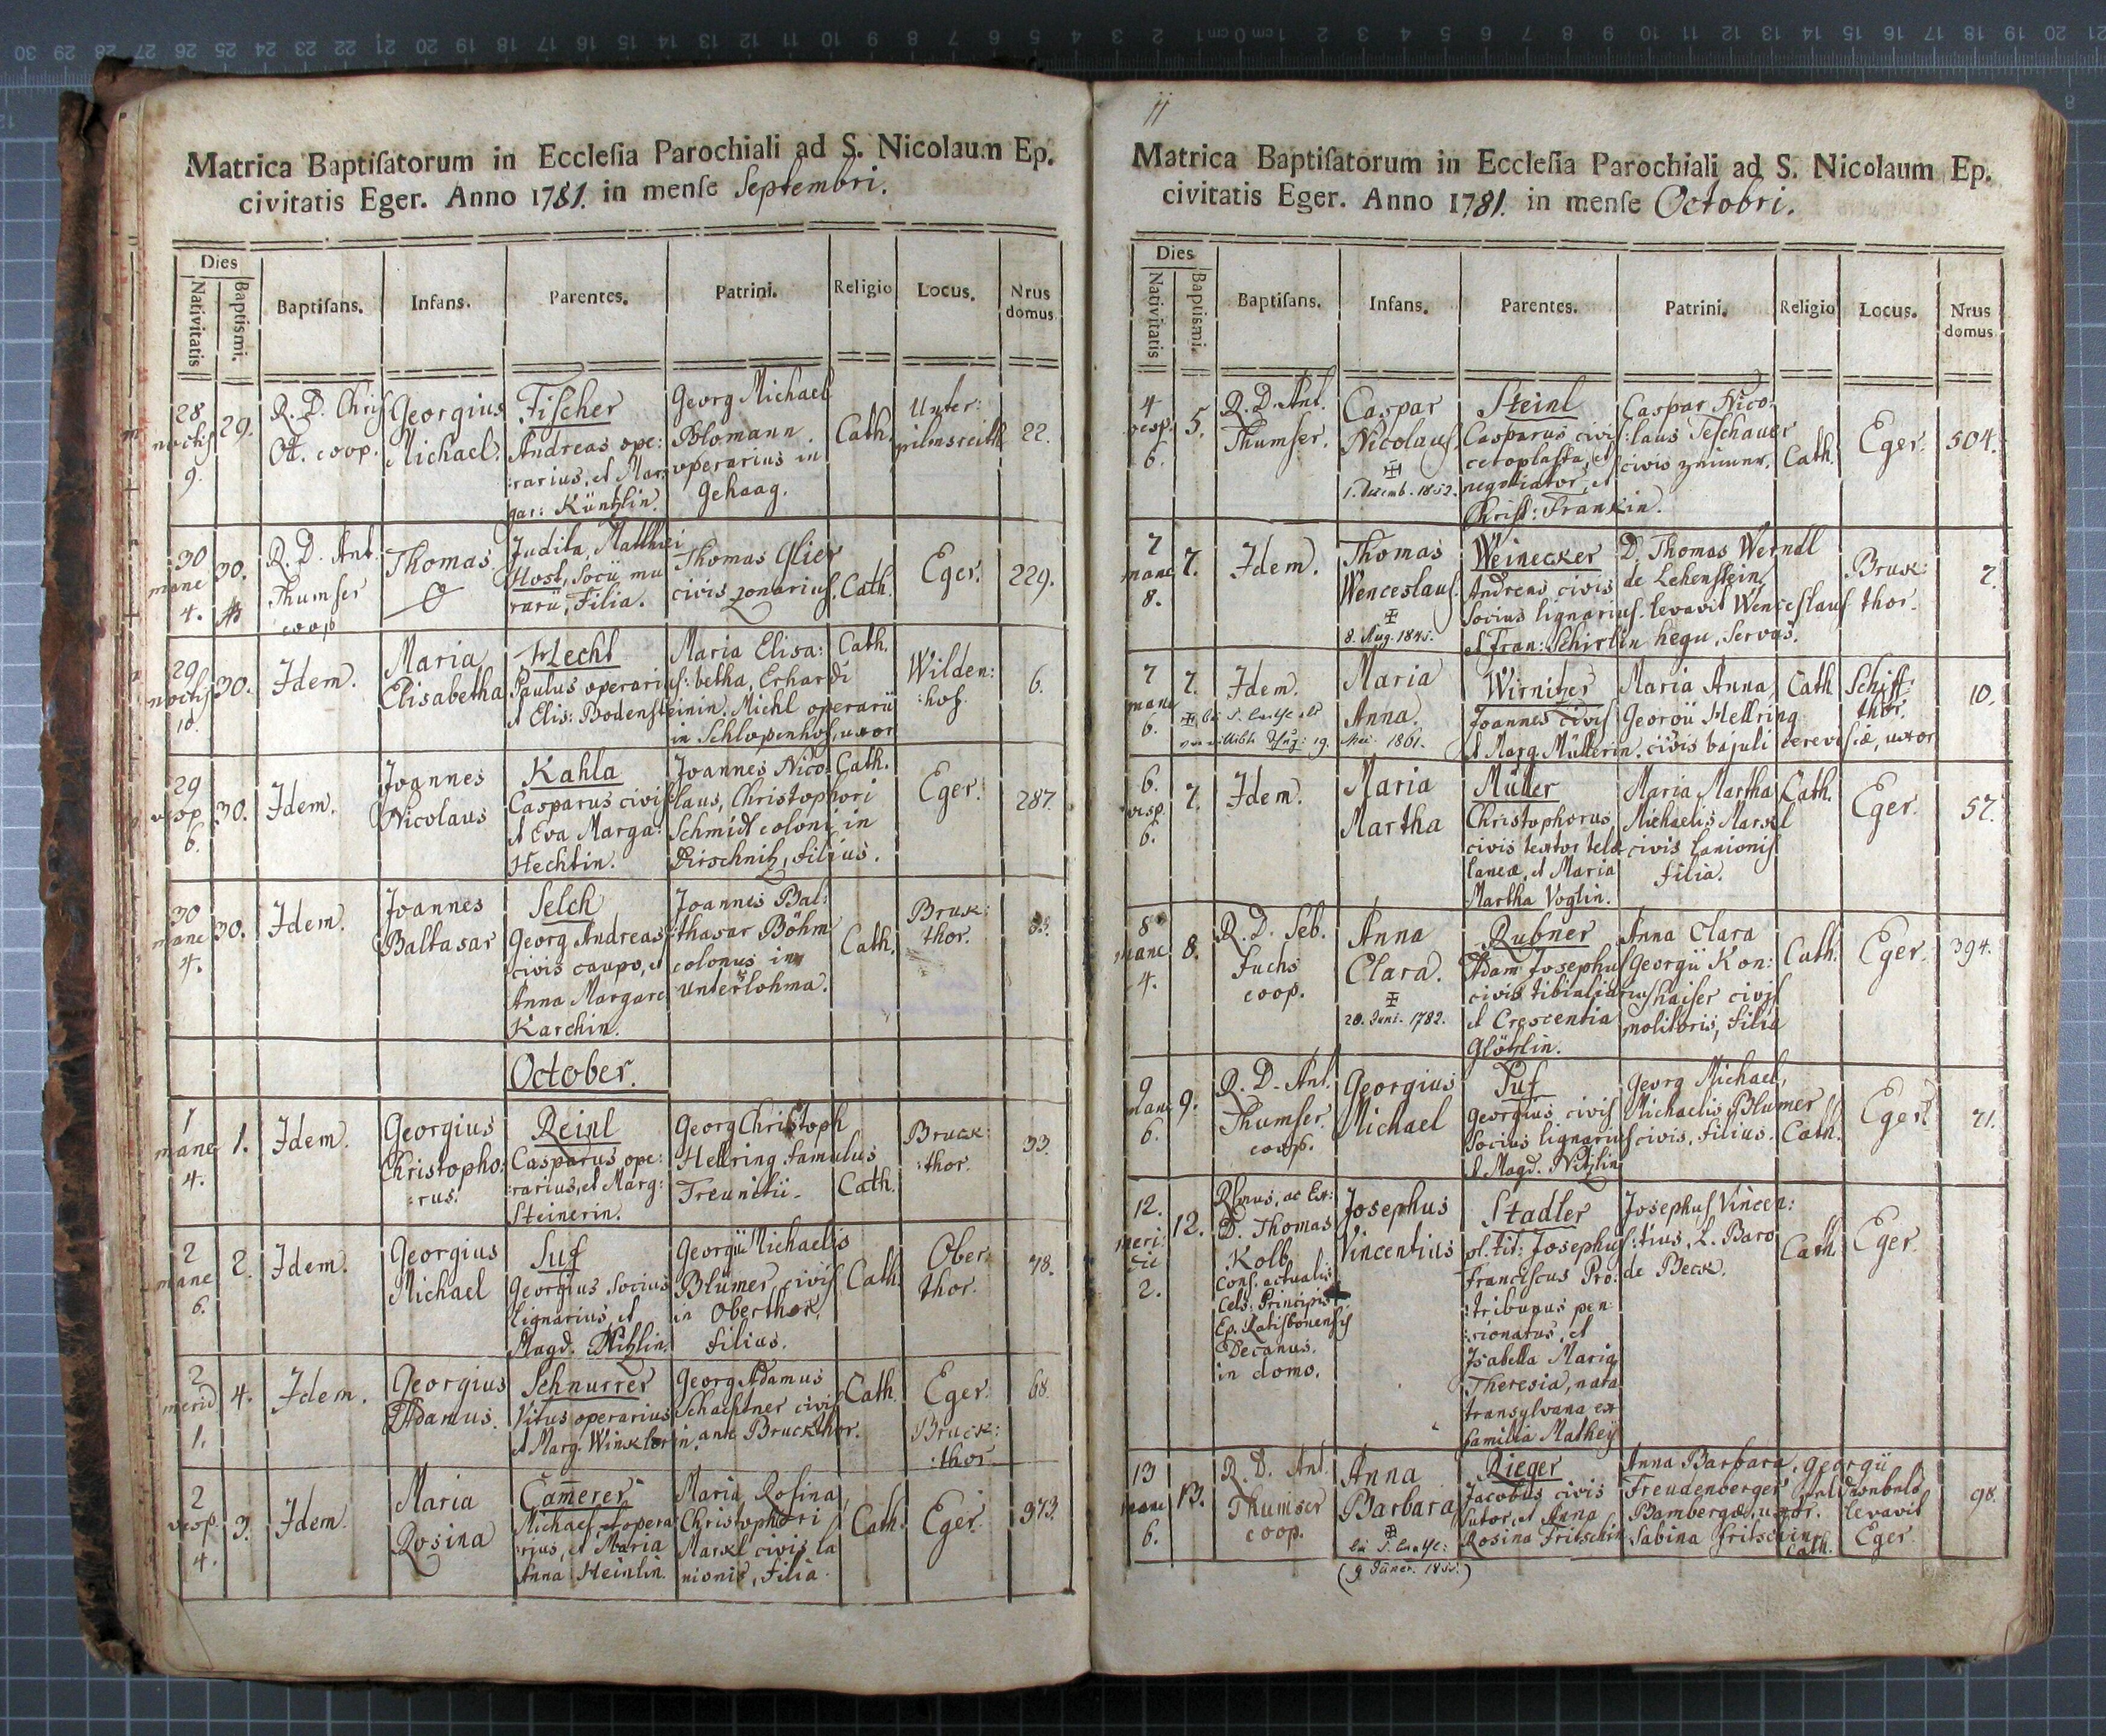 Matrica Baptiſatorum in Eccleſia Parochiali ad S. Nicolaum Ep.
civitatis Eger. Anno 1781. in menſe Septembri.
Dies
Nativitatis
Baptismi.
Baptiſans.
Infans.
Parentes.
Patrini.
Religio
Locus.
Nrus
domus
28
noctis
9.
29.
R. D. Chris
Ot. coop.
Georgius
Michael.
Fischer
Andreas ope:
:rarius, et Mar:
gar: Küntzlin.
Georg Michael
Blomann
operarius in
Gehaag.
Cath.
Unter:
22.
30
mane
4.
30.
R. D. Ant.
Thumser
coop
Thomas
Judita, Matthaei
Host, Socii mu
rarii, Filia.
Thomas Glier
civis zonarius.
Cath.
Eger.
229.
29
noctis
10.
30.
Idem.
Maria
Elisabetha
Hecht
Paulus operarius
et Elis: Bodensteinin.
Maria Elisa:
betha, Erhardi
Michl operarii
in Schlopenhof, uxor
Cath.
Wilden:
:hof.
6.
29
vesp
6.
30.
Idem.
Joannes
Nicolaus
Kahla
Casparus civis
et Eva Marga:
Hechtin.
Joannes Nico:
laus, Christophori
Schmidt coloni in
Dirschnitz, filius.
Cath.
Eger.
287.
30
mane
4.
30.
Idem.
Joannes
Baltasar
Selch
Georg Andreas
civis caupo, et
Anna Margare
Karchin.
Joannes Bal:
:thasar Böhm
colonus in
Unterlohma.
Cath.
Bruk:
thor.
October.
1
mane
4.
1.
Idem.
Georgius
Christopho:
:rus.
Reinl
Casparus ope:
:rarius, et Marg:
Steinerin.
Georg Christoph
Hellring famulus
Cath.
Bruck:
:thor.
33.
2
mane
6.
2.
Idem.
Georgius
Michael
Suf
Georgius Socius
lignarius, et
Magd.
Georgii Michaelis
Blümer, civis
in Oberthor,
filius.
Cath.
Ober
thor.
78.
2
merid
1.
4.
Idem.
Georgius
Adamus.
Schnurrer
Vitus operarius
et Marg. Winklerin.
Georg Adamus
Schachtner civis
ante Bruckthor.
Cath.
Eger.
Bruck:
:thor
68.
2
vesp.
4.
3.
Idem.
Maria
Rosina
Camerer
Michael, opera
rius, et Maria
Anna Heinlin.
Maria Rosina,
Christophori
Markl civis la
nionis, filia.
Cath.
Eger.
373.
11
Matrica Baptiſatorum in Eccleſia Parochiali ad S. Nicolaum Ep.
civitatis Eger. Anno 1781. in menſe Octobri.
Dies
Nativitatis
Baptismi.
Baptiſans.
Infans.
Parentes.
Patrini.
Religio
Locus.
Nrus
domus
4
vesp.
6.
5.
R. D. Ant.
Thumser.
Caspar
Nicolaus
1. Decemb. 1852.
Steinl
Casparus civis
ceroplasta, et
negotiator, et
Christ: Frankin.
Caspar Nico:
:laus Teschauer
civis
Cath.
Eger.
504.
7
mane
8.
7.
Idem.
Thomas
Wenceslaus.
8. Aug. 1845.
Weinecker
Andreas civis
Socius lignarius
et Fran: Schirlin
D. Thomas Werndl
de Lehenstein,
levavit Wenceslaus
hegu, servus.
Bruk:
thor.
2.
7
mane
6.
7.
Idem.
Maria
Anna.
Mai 1861.
Wirnitzer
Joannes civis
et Marg. Müllerin.
Maria Anna,
Georgii Hellring
civis bajuli cerevisiæ, uxor
Cath
Schift
thor.
10.
6.
vesp.
6.
7.
Idem.
Maria
Martha
Müller
Christophorus
civis textor telæ
laneæ, et Maria
Martha Voglin.
Maria Martha
Michaelis Markl
civis lanionis
filia.
Cath.
Eger.
57.
8
mane
4.
8.
R. D. Seb.
Fuchs
coop.
Anna
Clara.
20. Juni. 1782.
Rubner
Adam Josephus
civis tibialiarius
et Crescentia
Glötzlin.
Anna Clara
Georgii Kon:
haiser civis
molitoris, filia
Cath.
Eger.
394.
9
mane
6.
9.
R. D. Ant.
Thumser.
coop.
Georgius
Michael
Suf
Georgius civis
Socius lignarius
et Magd.
Georg Michael,
Michaelis Blumer
civis, filius.
Cath.
Eger.
71.
12.
meri:
dii
2.
12.
D. Thomas
Kolb,
Cons. actualis
Cels: Principis
Ep. Ratisbonensis
Decanus.
in domo.
Josephus
Vincentius
Stadler
pl. tit: Josephus
Franciscus Pro:
:tribunus pen:
:sionatus, et
Isabella Maria
Theresia, nata
transylvana ex
familia Mathey
Josephus Vincen:
:tius, L. Baro
de Beck.
Cath.
Eger.
13
mane
6.
13.
R. D. Ant.
Thumser
coop.
Anna
Barbara
(9 Jäner. 1855.)
Rieger
Jacobus civis
sutor, et Anna
Rosina Fritschin
Anna Barbara, Georgii
Freudenberger
Bambergæ, uxor. levavit
Sabina Fritschin
Cath.
Eger
98.